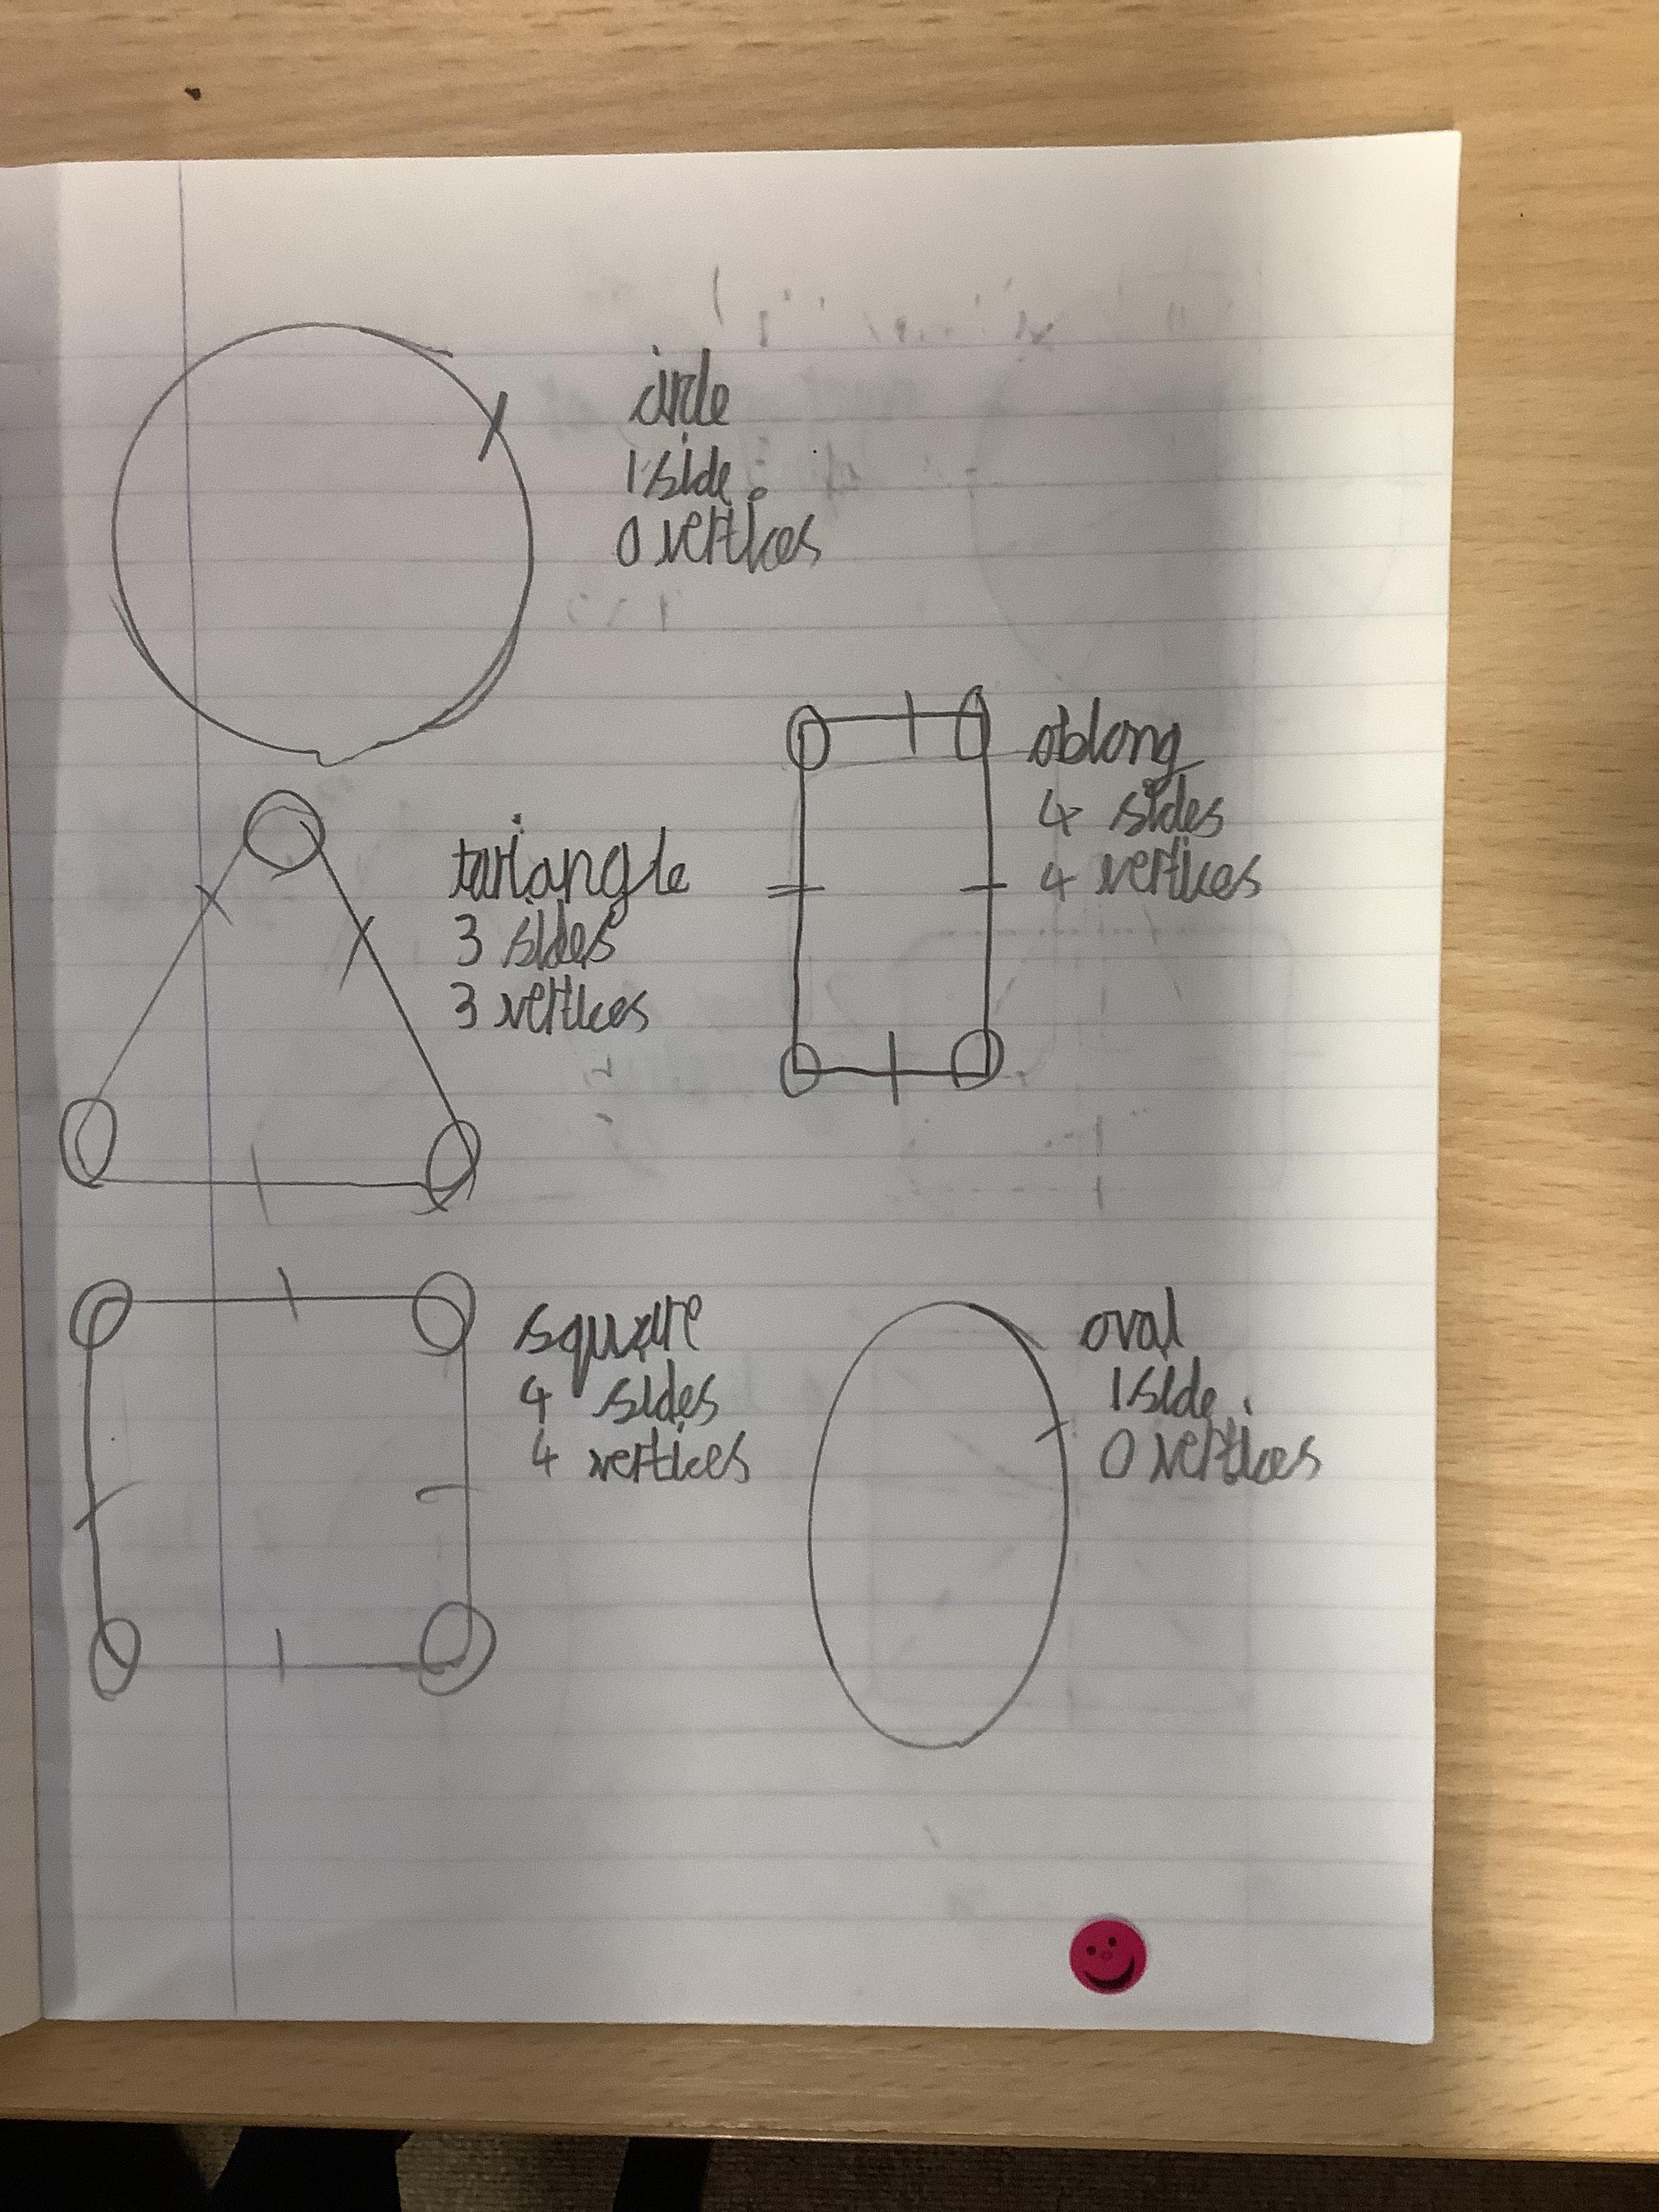 circle
1 side
0 vertices
oblong
4 sides
4 vertices
tariangle
3 sides
3 vertices
square
4 sides
4 vertices
oval
1 side
0 vertices